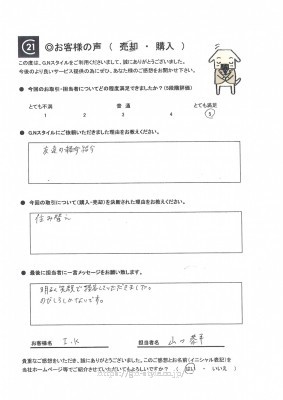 21 ◎お客様の声 ( 売却 ・ 購入 )
この度は、G.Nスタイルをご利用くださいまして、誠にありがとうございました。
今後のより良いサービス提供の為にぜひ、あなた様のご感想をお聞かせ下さい。
● 今回のお取引・担当者についてどの程度満足できましたか？(5段階評価)
とても不満 普通 とても満足
1 2 3 4 5
● G.Nスタイルにご依頼いただきました理由をお教えください。
友達の紹介
● 今回の取引について(購入・売却)を決断された理由をお教えください。
住み替え
● 最後に担当者に一言メッセージをお願い致します。
明るく笑顔で接客してくださいました。
のびしろしかないです。
お客様名 I.K 担当者名 山口
貴重なご感想をいただき、誠にありがとうございました。このご感想とお名前(イニシャル表記)を
当社ホームページ等でご紹介させていただいてもよろしいですか？ ( はい ・ いいえ )